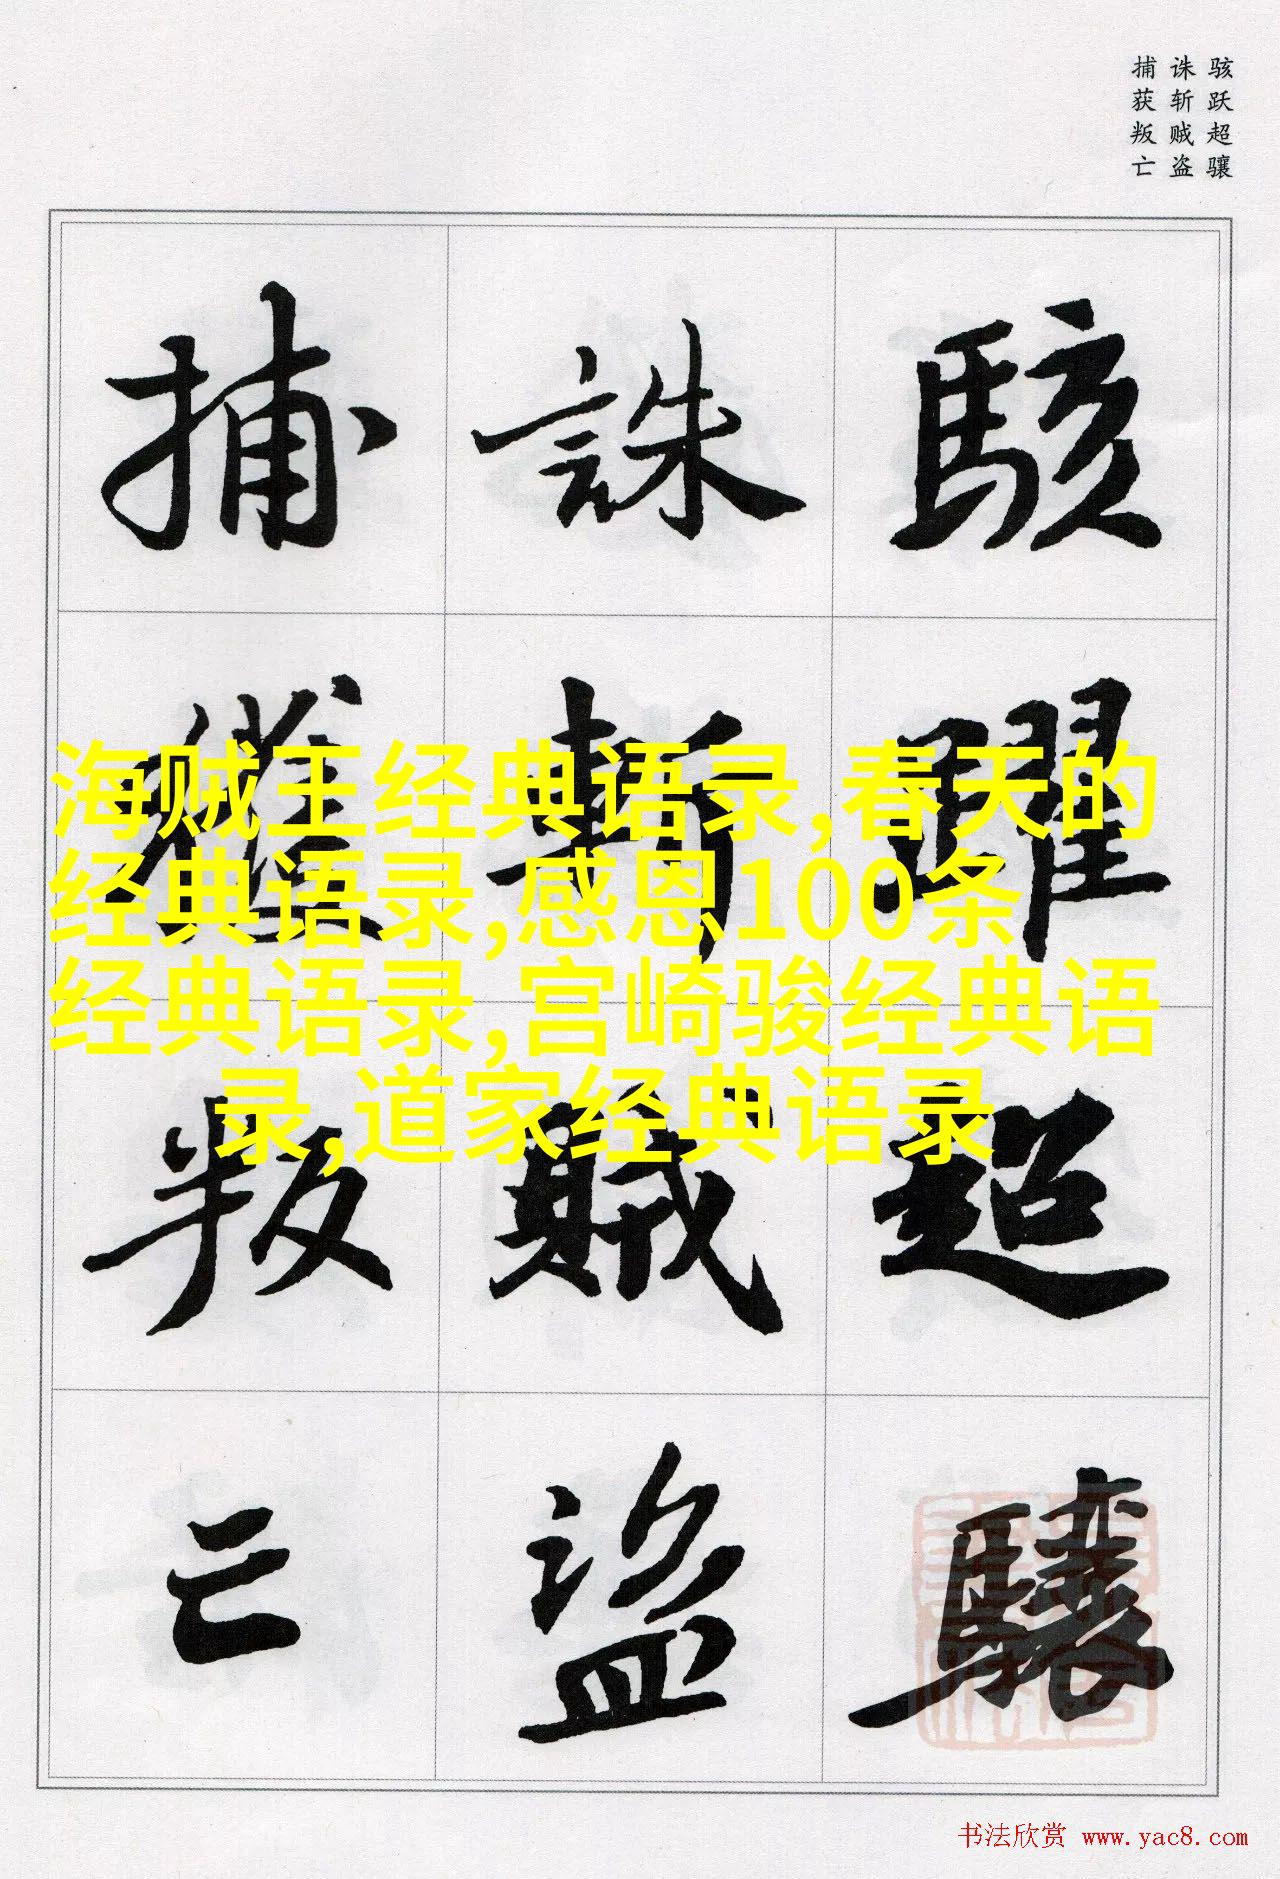 骇跃超骧
诛斩贼盗
捕获叛亡
駭躍超驤
誅斬賊盜
捕獲叛亡
海贼王经典语录,春天的
经典语录,感恩100条
经典语录,宫崎骏经典语
录,道家经典语录
书法欣赏 www.yac8.com